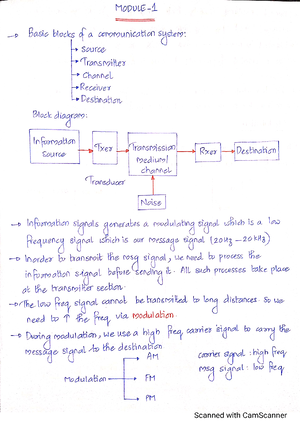 MODULE-1
→ Basic blocks of a communication system:
→ Source
→ Transmitter
→ Channel
→ Receiver
→ Destination
Block diagram:
Information Source
Txer
Transmission medium/ channel
Rxer
Destination
Transducer
Noise
→ Information signals generates a modulating signal which is a low
frequency signal which is our message signal (20Hz - 20kHz)
→ Inorder to transmit the msg signal, we need to process the
information signal before sending it. All such processes take place
at the transmitter section.
→ The low freq signal cannot be transmitted to long distances. So we
need to ↑ the freq via modulation.
→ During modulation, we use a high freq carrier signal to carry the
message signal to the destination
AM
Modulation
FM
PM
carrier signal : high freq
msg signal : low freq
Scanned with CamScanner